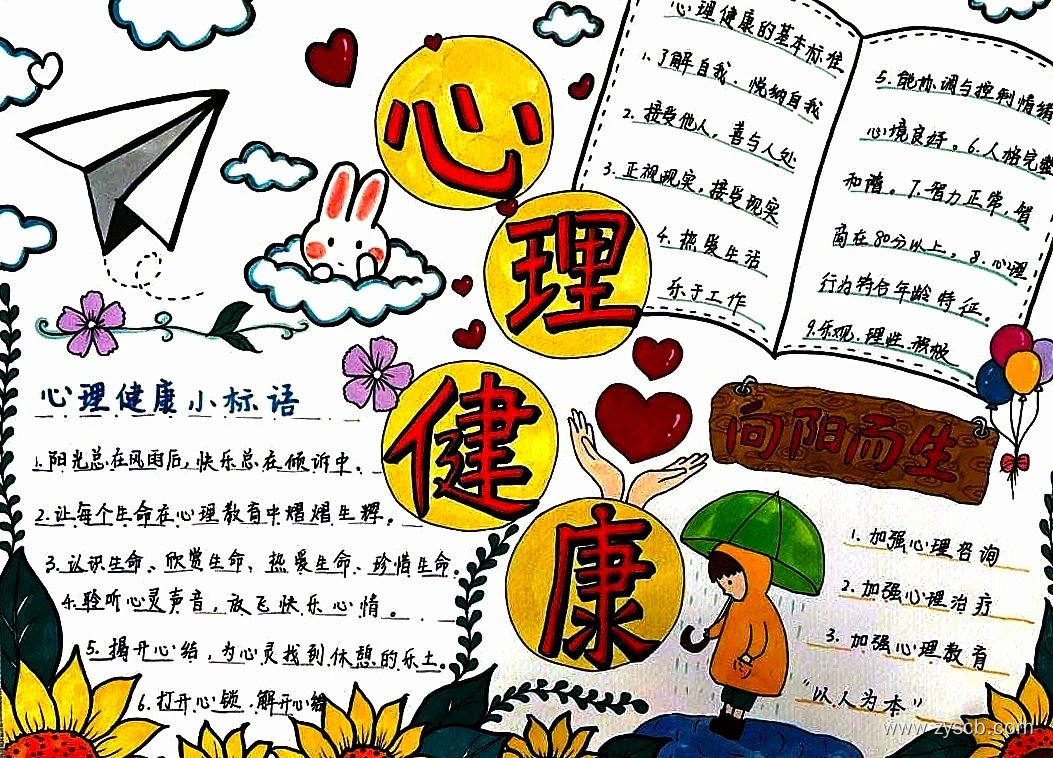 心理健康
心理健康的基本标准
1.了解自我、悦纳自我
2.接受他人,善与人处
3.正视现实,接受现实
4.热爱生活
乐于工作
5.能协调与控制情绪
心境良好。6.人格完整
和谐。7.智力正常,智
商在80分以上。8.心理
行为符合年龄特征。
9.乐观、理性、积极
心理健康小标语
1.阳光总在风雨后,快乐总在倾诉中。
2.让每个生命在心理教育中熠熠生辉。
3.认识生命、欣赏生命、热爱生命、珍惜生命。
4.聆听心灵声音,放飞快乐心情。
5.揭开心结,为心灵找到休憩的乐土。
6.打开心锁,解开心结
向阳而生
1.加强心理咨询
2.加强心理治疗
3.加强心理教育
“以人为本”
www.zyscb.com